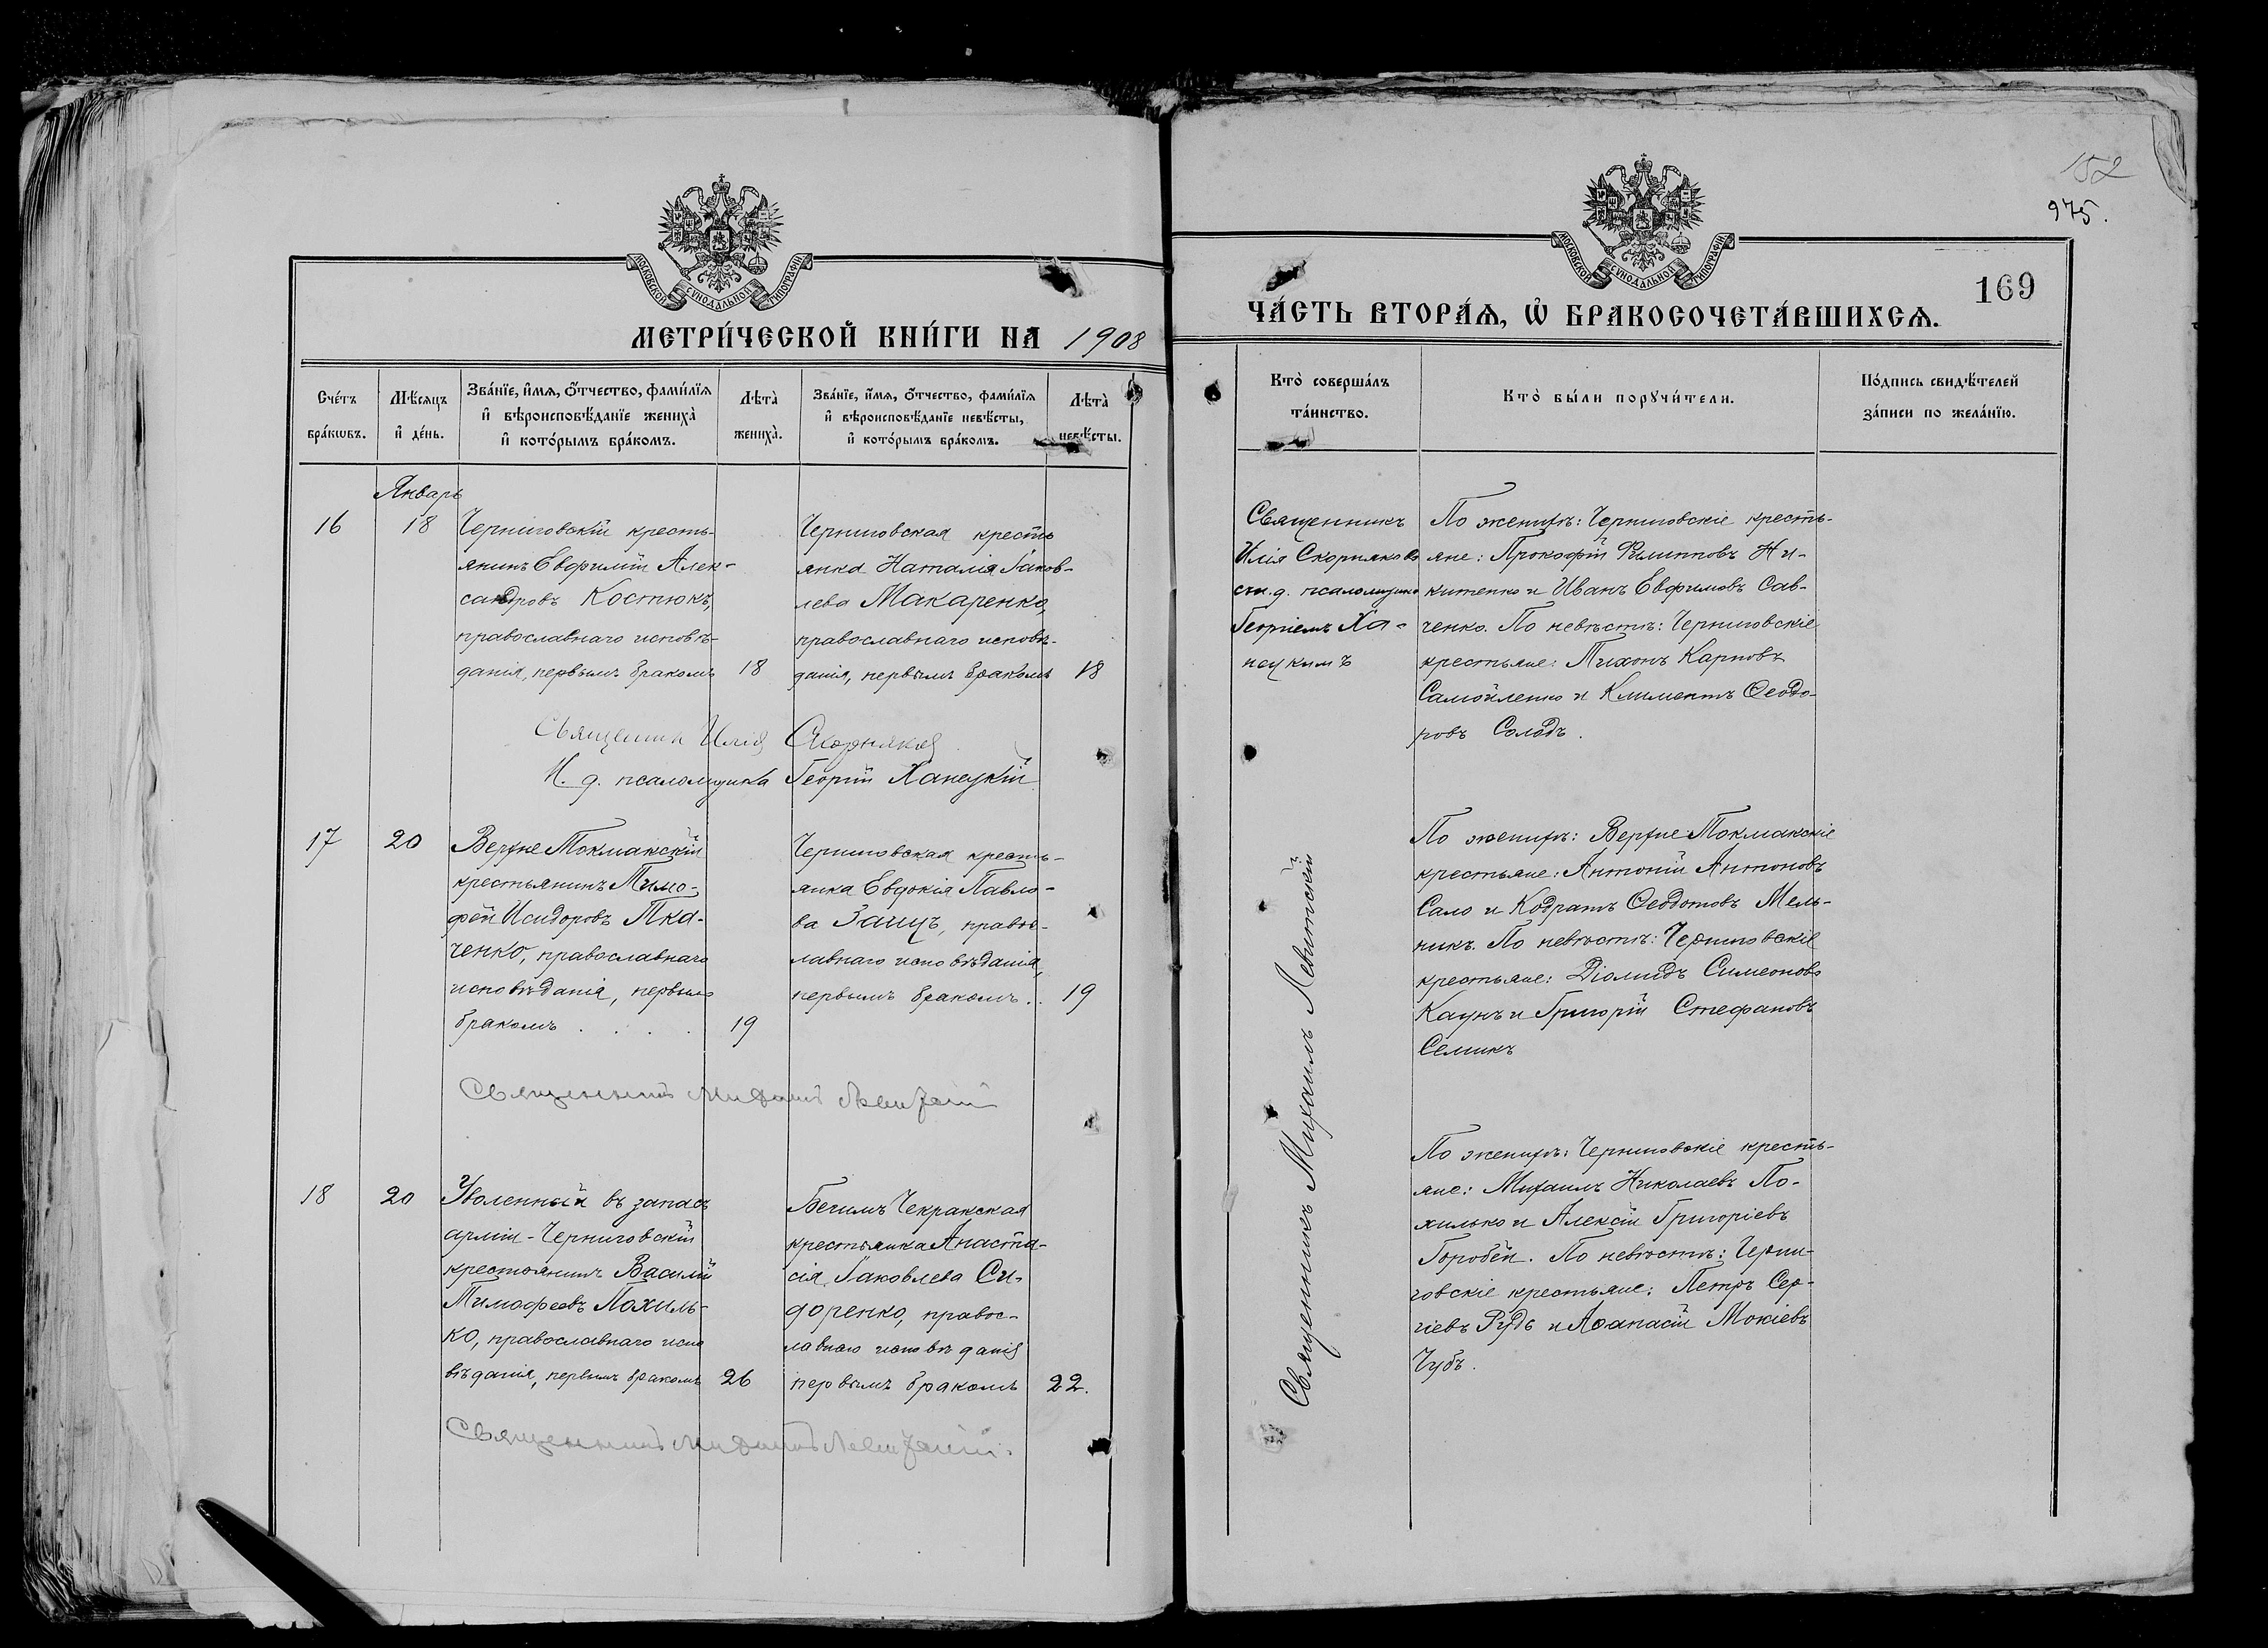 МОСКОВСКОЙ СѴНОДАЛЬНОЙ ТИПОГРАФІИ
МЕТРИ́ЧЕСКОЙ КНИ́ГИ НА 1908
Сче́тъ бра́кωвъ.
Мѣ́сяцъ и҆ де́нь.
Зва́нїе, и҆́мя, ѻ҆́тчество, фами́лїя
и҆ вѣроисповѣ́данїе жениха̀
и҆ кото́рымъ бра́комъ.
Лѣта̀ жениха̀.
Зва́нїе, и҆́мя, ѻ҆́тчество, фами́лїя
и҆ вѣроисповѣ́данїе невѣ́сты,
и҆ кото́рымъ бра́комъ.
Лѣта̀ невѣ́сты.
Январь
16
18
Черниговскій кресть-
янинъ Евфимій Алек-
сандровъ Костюкъ,
православнаго исповѣ-
данія, первымъ бракомъ
18
Черниговская кресть
янка Наталія Іаков-
лева Макаренко,
православнаго исповѣ-
данія, первымъ бракомъ
18
Священник Илія Скорняковъ
И. д. псаломщика Георгій Ханецкій
17
20
Верхне Токмакскій
крестьянинъ Тимо-
фей Исидоровъ Тка-
ченко, православнаго
исповѣданія, первымъ
бракомъ . . . .
19
Черниговская кресть-
янка Евдокія Павло-
ва Заицъ, правос-
лавнаго исповѣданія,
первымъ бракомъ . .
19
Священникъ Михаилъ Левитскій
18
20
Уволенный въ запасъ
арміи - Черниговскій
крестьянинъ Василій
Тимофеевъ Похиль-
ко, православнаго испо
вѣданія, первымъ бракомъ
26
Бегимъ Чекракская
крестьянка Анаста-
сія Іаковлева Си-
доренко, правос-
лавнаго исповѣданія
первымъ бракомъ
22.
Священникъ Михаилъ Левитскій.
152
975.
169
МОСКОВСКОЙ СѴНОДАЛЬНОЙ ТИПОГРАФІИ
ЧА́СТЬ ВТОРА́Ѧ, Ѡ҆ БРАКОСОЧЕТА́ВШИХСѦ.
Кто̀ соверша́лъ
та́инство.
Кто̀ бы́ли порꙋчи́тели.
По́дпись свидѣ́телей
за́писи по жела́нїю.
Священникъ
Илія Скорняковъ
съ и. д. псаломщика
Георгіемъ Ха-
нецкимъ
По женихѣ: Черниговскіе кресть-
яне: Прокофій Филипповъ Ни-
китенко и Иванъ Евфимовъ Сав-
ченко. По невѣстѣ: Черниговскіе
крестьяне: Тихонъ Карповъ
Самойленко и Климентъ Ѳеодо-
ровъ Солодъ.
Священникъ Михаилъ Левитскій
По женихѣ: Верхне Токмакскіе
крестьяне: Антоній Антоновъ
Сало и Кодратъ Ѳеодотовъ Мель-
никъ. По невѣстѣ: Черниговскіе
крестьяне: Діомидъ Симеоновъ
Каунъ и Григорій Стефановъ
Семикъ
По женихѣ: Черниговскіе кресть-
яне: Михаилъ Николаевъ По-
хилько и Алексій Григоріевъ
Горобей. По невѣстѣ: Черни-
говскіе крестьяне: Петръ Сер-
гіевъ Рудь и Аѳанасій Мокіевъ
Чубъ.